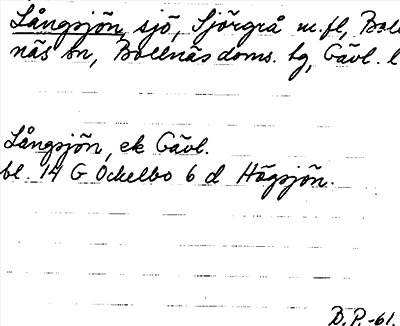 Långsjön, sjö, Sjörgrå m.fl, Boll
näs sn, Bollnäs doms. hg, Gävl. l
Långsjön, ek Gävl.
bl. 14 G Ockelbo 6 d Högsjön.
B.P.-61.